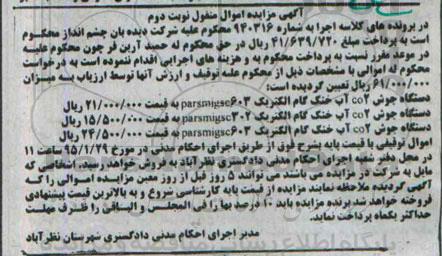 آگهی مزایده اموال منقول نوبت دوم
در پرونده های کلاسه اجرا به شماره ۹۴۰۳۱۶ محکوم علیه شرکت دیده بان چشم انداز محکوم
است به پرداخت مبلغ ۴۱/۶۳۹/۷۲۰ ریال در حق محکوم له حمید آرین فر چون محکوم علیه
در موعد مقرر نسبت به پرداخت محکوم به و هزینه های اجرایی اقدام ننموده است به درخواست
محکوم له اموالی با مشخصات ذیل از محکوم علیه توقیف و ارزش آنها توسط ارزیاب به میزان
۶۱/۰۰۰/۰۰۰ ریال تعیین گردیده است:
دستگاه جوش co۲ آب خنک گام الکتریک parsmigsc۶۰۳ به قیمت ۲۱/۰۰۰/۰۰۰ ریال
دستگاه جوش co۲ آب خنک گام الکتریک parsmigsc۳۰۲ به قیمت ۱۵/۵۰۰/۰۰۰ ریال
دستگاه جوش co۲ آب خنک گام الکتریک parsmigsc۶۰۳ به قیمت ۲۴/۵۰۰/۰۰۰ ریال
اموال توقیفی با قیمت پایه بشرح فوق از طریق اجرای احکام مدنی در مورخ ۹۵/۱/۲۹ ساعت ۱۱
در محل دفتر شعبه اجرای احکام مدنی دادگستری نظرآباد به فروش خواهد رسید. اشخاصی که
مایل به شرکت در مزایده می باشند می توانند ۵ روز قبل از روز معین مزایده اموالی را که
آگهی گردیده ملاحظه نمایند مزایده از قیمت پایه کارشناسی شروع و به بالاترین قیمت پیشنهادی
فروخته خواهد شد برنده مزایده باید ۱۰ درصد بها را فی المجلس و الباقی را ظرف مهلت
حداکثر یکماه پرداخت نماید.
مدیر اجرای احکام مدنی دادگستری شهرستان نظرآباد